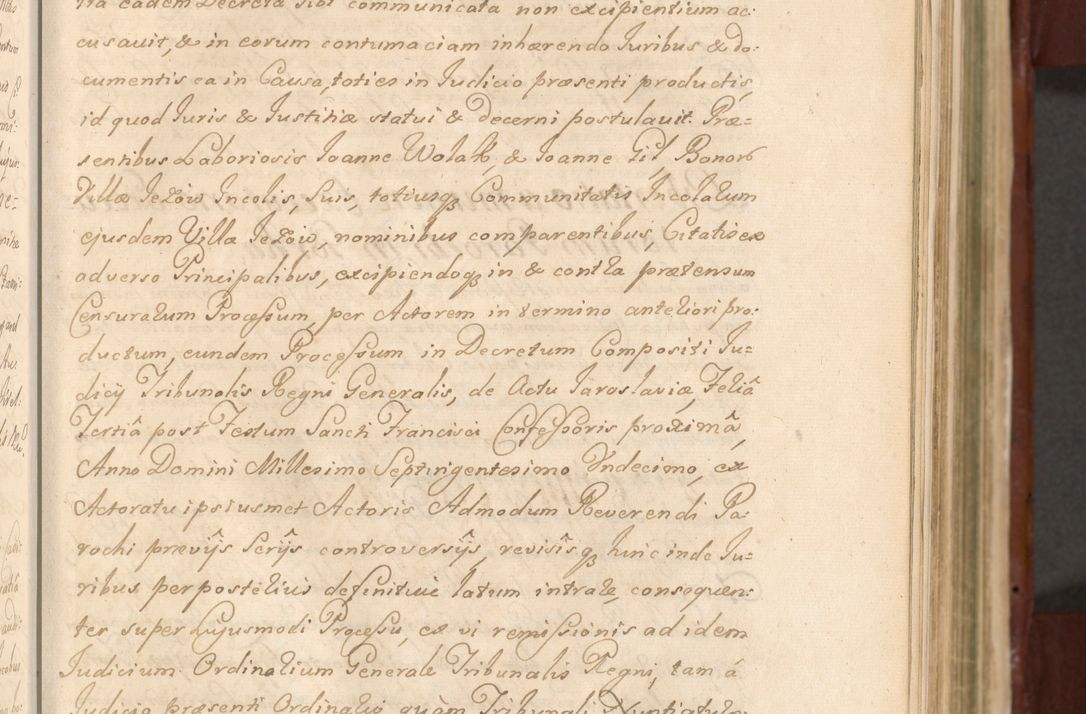 tra eadem Decreta sibi communicata non excipientium ac:
cusavit, & in eorum contumaciam inhærendo Iuribus & do:
cumentis ea in Causa, toties in Iudicio præsenti productis,
id quod Iuris & Iustitiæ statui & decerni postulavit. Præ=
sentibus Laboriosis Ioanne Wolak, & Ioanne Gil Bonor
Villæ Ieżow Incolis, suis, totiusq Communitatis Incolarum
ejusdem Villæ Ieżow, nominibus comparentibus, Citatis ex
adverso Principalibus, excipiendoq in & contra prætensum
Censuratum Processum, per Actorem in termino anteriori pro:
ductum, eundem Processum in Decretum Compositi Iu=
dicij Tribunalis Regni Generalis, de Actu Iaroslaviæ, Feriâ
Tertiâ post Festum Sancti Francisci Confessoris proximâ,
Anno Domini Millesimo Septingentesimo Undecimo, ex
Actoratu ipsiusmet Actoris Admodum Reverendi Pa:
rochi prævijs serijs controversijs, revisisq hinc inde Iu=
ribus per posterius definitive latum intrare, consequen:
ter super hujusmodi Processu, ex vi remissionis ad idem
Iudicium Ordinarium Generale Tribunalis Regni, tam á
Iudicio præsenti Ordinario quàm Tribunali Nuntiaturæ